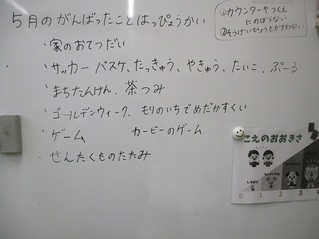 5月のがんばったことはっぴょうかい
①カウンターやつくえ
にのぼらない
・家のおてつだい
・サッカー バスケ、たっきゅう、やきゅう、たいこ、ぷーる
・まちたんけん、茶つみ
・ゴールデンウィーク、もりのいちでめだかすくい
・ゲーム カービーのゲーム
・せんたくものたたみ
こえのおおきさ
0 1 2 3 4